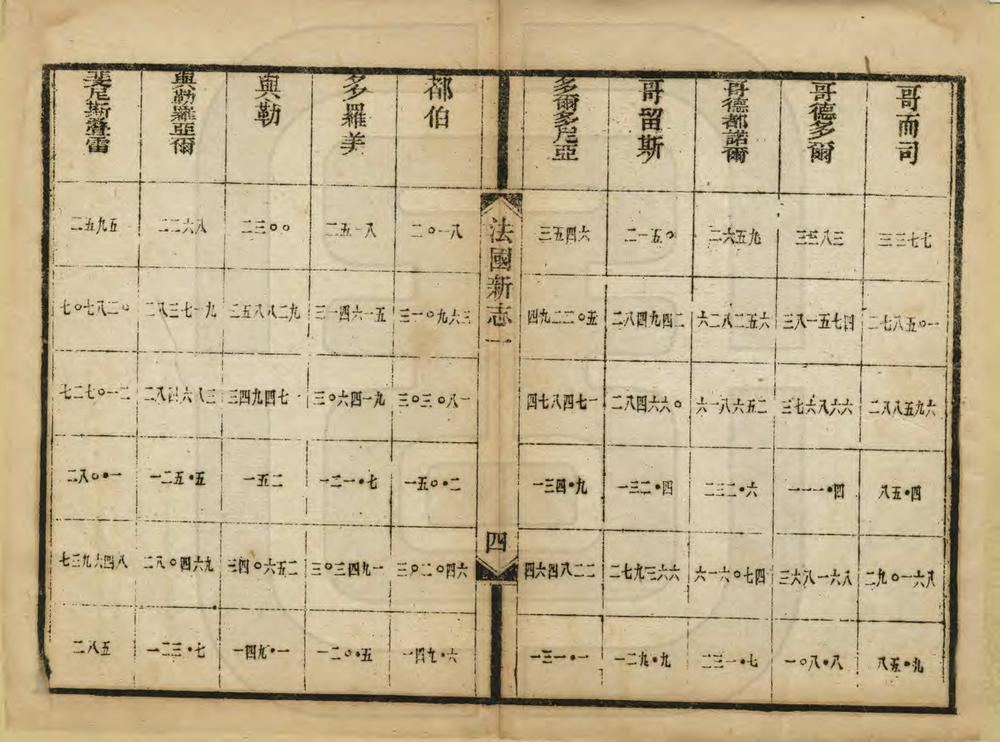 哥而司 三三七七 二七八五〇一 二八八五九六 八五•四 二九〇一六八 八五•九
哥德多爾 三三八三 三八一五七四 三七六八六六 一一一•四 三六八一六八 一〇八•八
哥德都諾爾 二六五九 六二八二五六 六一八六五二 二三二•六 六一六〇七四 二三一•七
哥留斯 二一五〇 二八四九四二 二八四六六〇 一三二•四 二七九三六六 一二九•九
多爾多尼亞 三五四六 四九二二〇五 四七八四七一 一三四•九 四六四八二二 一三一•一
法國新志一 四
都伯 二〇一八 三一〇九六三 三〇三〇八一 一五〇•二 三〇二〇四六 一四九•六
多羅美 二五一八 三一四六一五 三〇六四一九 一二一•七 三〇三四九一 一二〇•五
與勒 二三〇〇 三五八八二九 三四九四七一 一五二 三四〇六五二 一四九•一
與勒羅亞爾 二二六八 二八三七一九 二八四六八三 一二五•五 二八〇四六九 一二三•七
斐尼斯疊雷 二五九五 七〇七八二〇 七二七〇一二 二八〇•一 七三九六四八 二八五